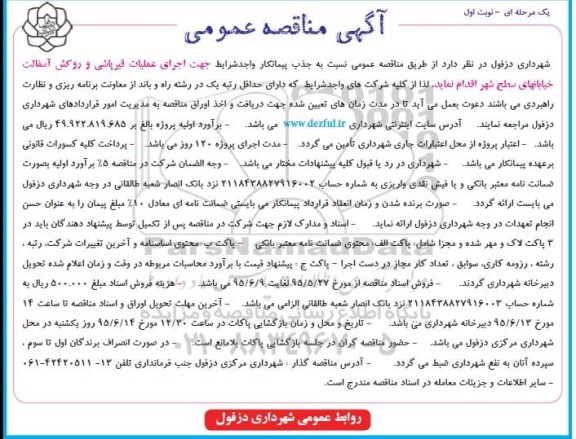 یک مرحله ای - نوبت اول
آگهی مناقصه عمومی
شهرداری دزفول در نظر دارد از طریق مناقصه عمومی نسبت به جذب پیمانکار واجدشرایط جهت اجرای عملیات قیرپاشی و روکش آسفالت
خیابانهای سطح شهر اقدام نماید. لذا از کلیه شرکت های واجدشرایط که دارای حداقل رتبه یک در رشته راه و باند از معاونت برنامه ریزی و نظارت
راهبردی می باشند دعوت بعمل می آید تا در مدت زمان های تعیین شده جهت دریافت و اخذ اوراق مناقصه به مدیریت امور قراردادهای شهرداری
دزفول مراجعه نمایند. آدرس سایت اینترنتی شهرداری www.dezful.ir می باشد. - برآورد اولیه پروژه بالغ بر ۴۹.۹۲۲.۸۱۹.۶۸۵ ریال می
باشد. - اعتبار پروژه از محل اعتبارات جاری شهرداری تأمین می گردد. - مدت اجرای پروژه ۱۲۰ روز می باشد. - پرداخت کلیه کسورات قانونی
برعهده پیمانکار می باشد. - شهرداری در رد یا قبول کلیه پیشنهادات مختار می باشد. - وجه الضمان شرکت در مناقصه ۵٪ برآورد اولیه بصورت
ضمانت نامه معتبر بانکی و یا فیش نقدی واریزی به شماره حساب ۲۱۱۸۴۳۸۸۲۷۹۱۶۰۰۲ نزد بانک انصار شعبه طالقانی در وجه شهرداری دزفول
می بایست ارائه گردد. - صورت برنده شدن و زمان انعقاد قرارداد پیمانکار می بایستی ضمانت نامه ای معادل ۱۰٪ مبلغ پیمان را به عنوان حسن
انجام تعهدات در وجه شهرداری دزفول ارائه نماید. - اسناد و مدارک لازم جهت شرکت در مناقصه پس از تکمیل توسط پیشنهاد دهندگان باید در
۳ پاکت لاک و مهر شده و مجزا شامل: پاکت الف: محتوی ضمانت نامه معتبر بانکی - پاکت ب: محتوی اساسنامه و آخرین تغییرات شرکت، رتبه ،
رشته ، رزومه کاری، سوابق ، تعداد کار مجاز در دست اجرا - پاکت ج : پیشنهاد قیمت با برآورد محاسبات مربوطه در وقت و زمان اعلام شده تحویل
دبیرخانه شهرداری گردند. - فروش اسناد مناقصه از مورخ ۹۵/۵/۲۷ لغایت ۹۵/۶/۹ می باشد. - هزینه فروش اسناد مبلغ ۵۰۰.۰۰۰ ریال به
شماره حساب ۲۱۱۸۴۳۸۸۲۷۹۱۶۰۰۳ نزد بانک انصار شعبه طالقانی الزامی می باشد. - آخرین مهلت تحویل اوراق و اسناد مناقصه تا ساعت ۱۴
مورخ ۹۵/۶/۱۳ دبیرخانه شهرداری می باشد. - تاریخ و محل و زمان بازگشایی پاکات در ساعت ۱۲/۳۰ مورخ ۹۵/۶/۱۴ روز یکشنبه در محل
شهرداری مرکزی دزفول می باشد. - حضور مناقصه گران در جلسه بازگشایی پاکات بلامانع است. - در صورت انصراف برندگان اول تا سوم ،
سپرده آنان به نفع شهرداری ضبط می گردد. - آدرس مناقصه گذار : شهرداری مرکزی دزفول جنب فرمانداری تلفن ۱۳- ۴۲۴۲۰۵۱۱-۰۶۱
- سایر اطلاعات و جزئیات معامله در اسناد مناقصه مندرج است.
روابط عمومی شهرداری دزفول